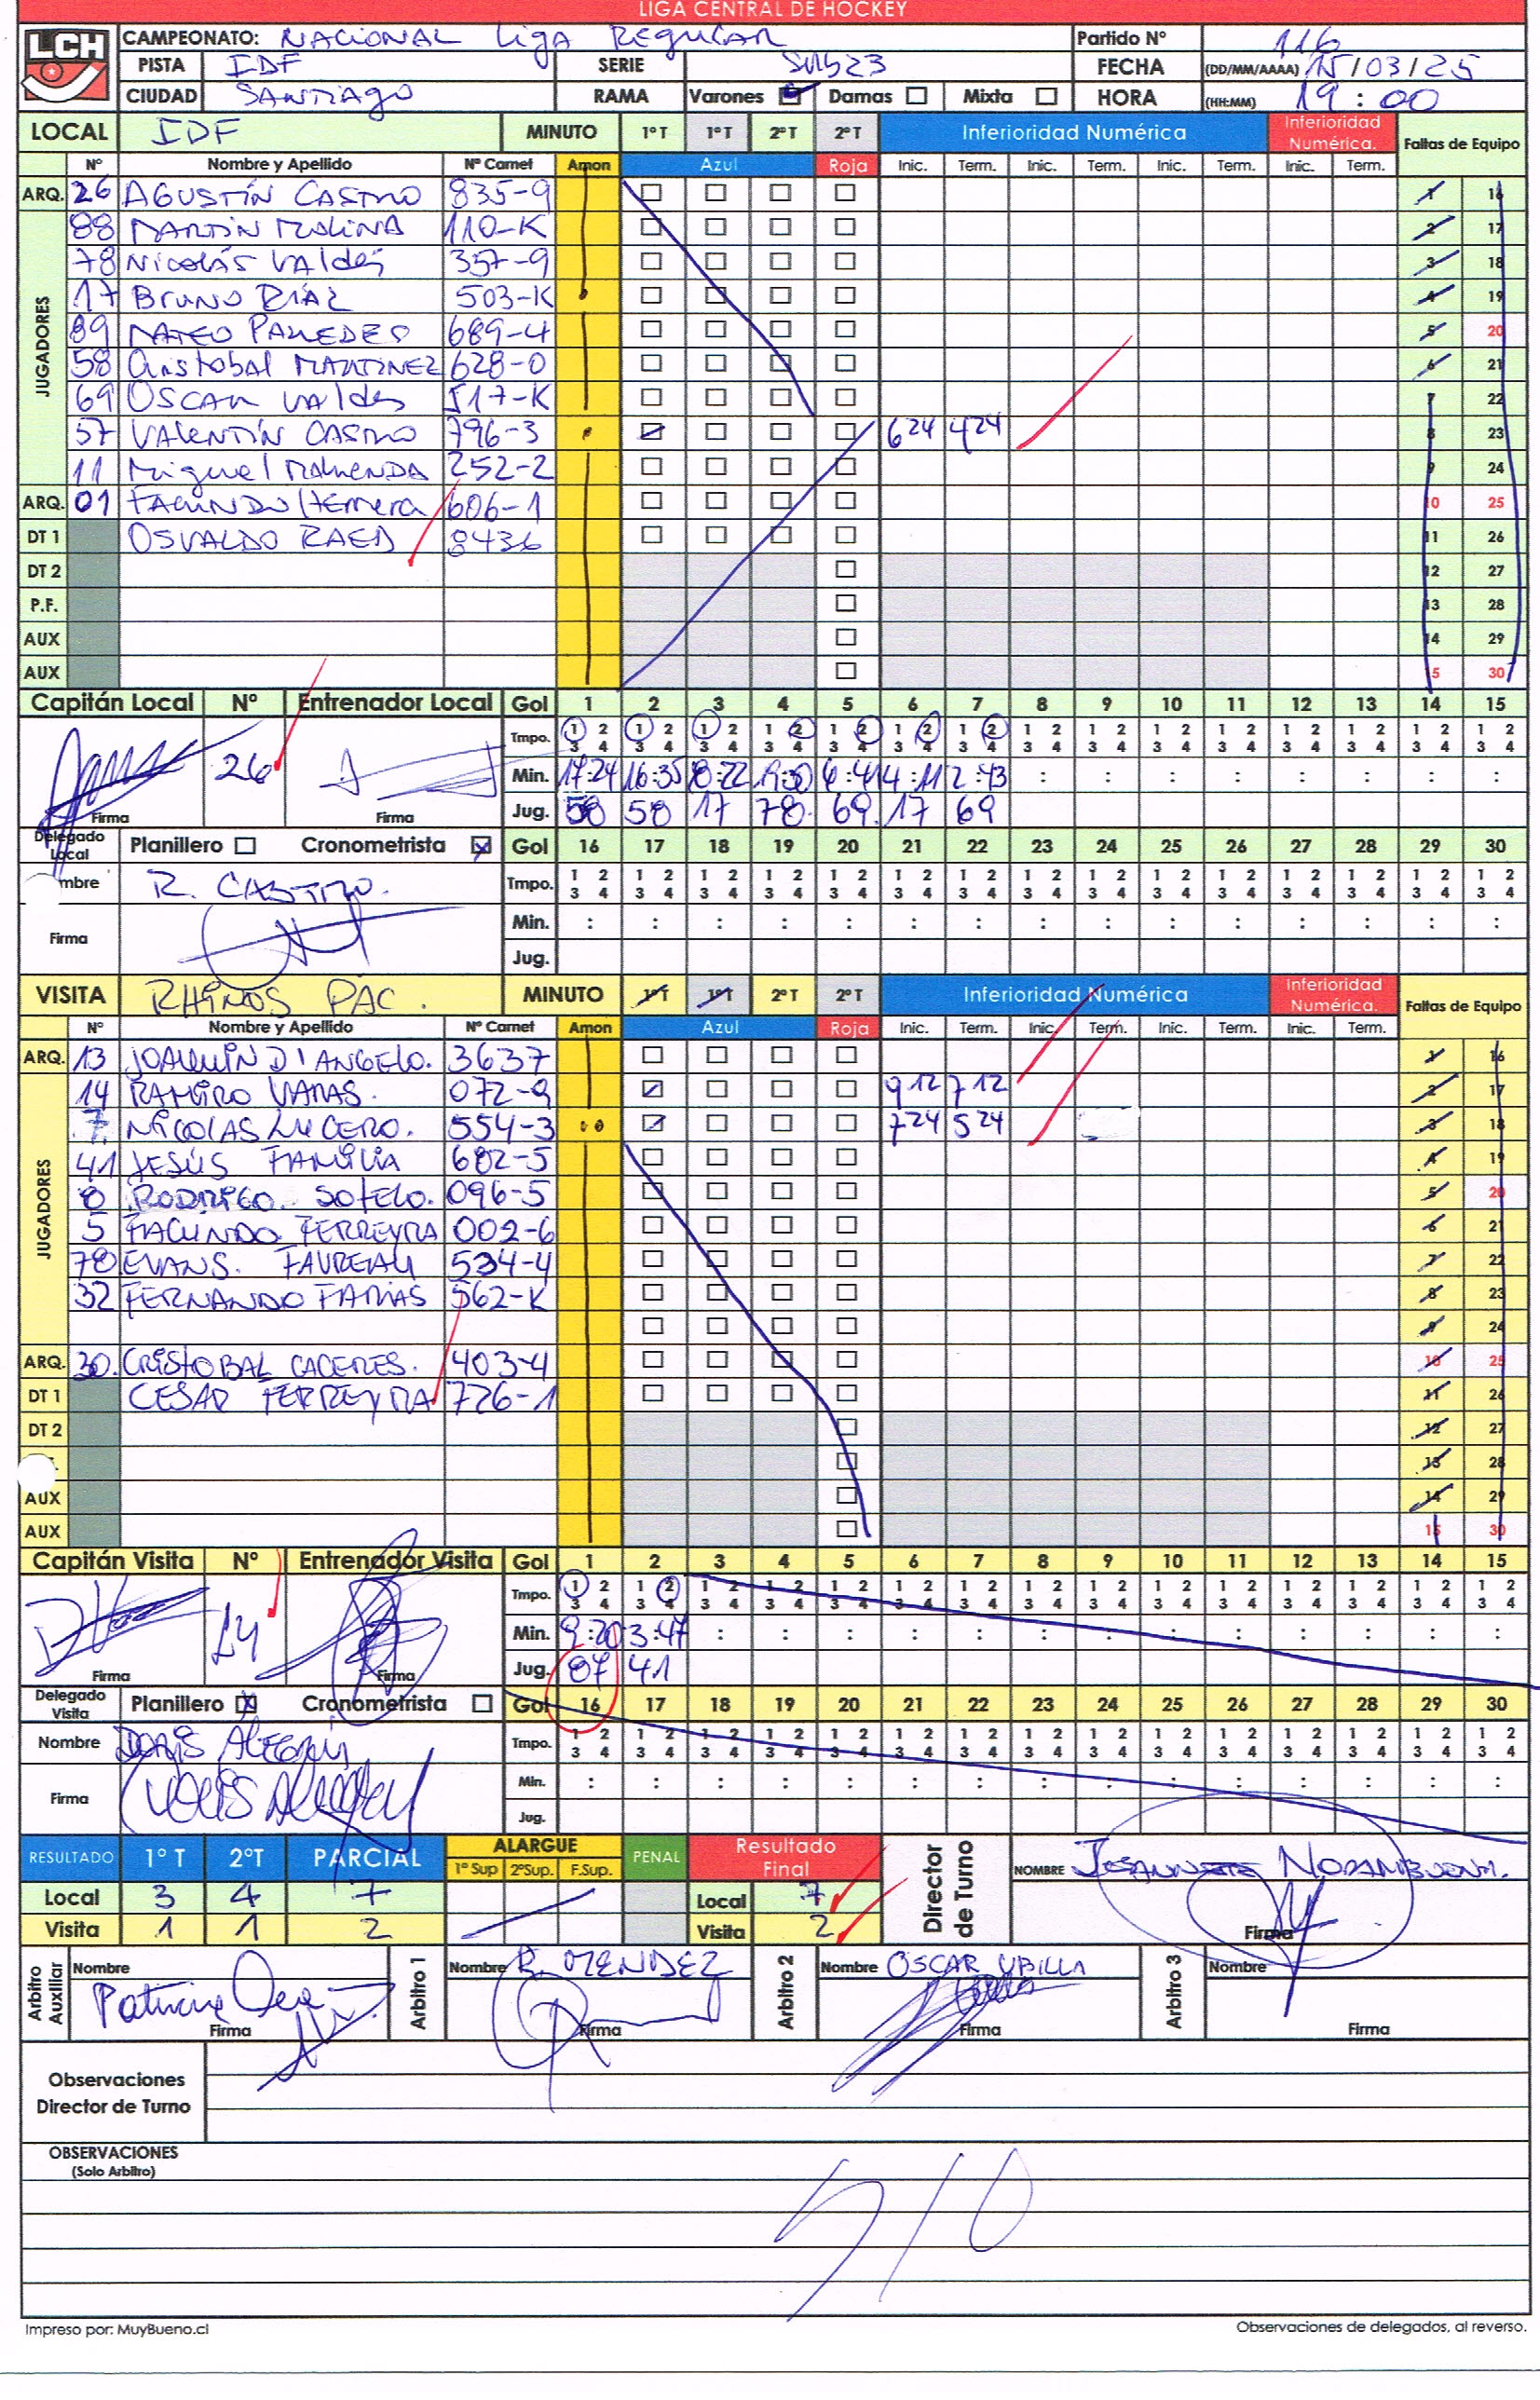 LIGA CENTRAL DE HOCKEY
LCH
CAMPEONATO: NACIONAL Liga REGULAR Partido Nº 116
PISTA IDF SERIE SUB23 FECHA (DD/MM/AAAA) 15/03/25
CIUDAD SANTIAGO RAMA Varones Damas Mixta HORA (HH:MM) 19:00
LOCAL IDF MINUTO 1º T 1º T 2º T 2º T Inferioridad Numérica Inferioridad Numérica. Faltas de Equipo
Nº Nombre y Apellido Nº Carnet Amon Azul Roja Inic. Term. Inic. Term. Inic. Term. Inic. Term.
ARQ. 26 AGUSTÍN CASTRO 835-9 1 16
JUGADORES
88 MARTÍN MOLINA 110-K 2 17
78 Nicolás Valdés 357-9 3 18
17 BRUNO DÍAZ 503-K 4 19
89 MATEO PAREDES 689-4 5 20
58 Cristobal MARTINEZ 628-0 6 21
69 OSCAR Valdes 517-K 7 22
57 VALENTÍN CASTRO 796-3 624 424 8 23
11 Miguel MAHENDA 252-2 9 24
ARQ. 01 FACUNDO Herrera 606-1 10 25
DT 1 OSVALDO RAED 8436 11 26
DT 2 12 27
P.F. 13 28
AUX 14 29
AUX 5 30
Capitán Local Nº Entrenador Local Gol 1 2 3 4 5 6 7 8 9 10 11 12 13 14 15
Tmpo. 1 2 1 2 1 2 1 2 1 2 1 2 1 2 1 2 1 2 1 2 1 2 1 2 1 2 1 2 1 2
3 4 3 4 3 4 3 4 3 4 3 4 3 4 3 4 3 4 3 4 3 4 3 4 3 4 3 4 3 4
26 Min. 17:24 16:35 8:22 9:30 6:41 4:11 2:43 : : : : : : : :
Firma Firma Jug. 58 58 17 78 69 17 69
Delegado Local Planillero Cronometrista Gol 16 17 18 19 20 21 22 23 24 25 26 27 28 29 30
mbre R. CASTRO. Tmpo. 1 2 1 2 1 2 1 2 1 2 1 2 1 2 1 2 1 2 1 2 1 2 1 2 1 2 1 2 1 2
3 4 3 4 3 4 3 4 3 4 3 4 3 4 3 4 3 4 3 4 3 4 3 4 3 4 3 4 3 4
Firma Min. : : : : : : : : : : : : : : :
Jug.
VISITA RHINOS PAC. MINUTO 1º T 1º T 2º T 2º T Inferioridad Numérica Inferioridad Numérica. Faltas de Equipo
Nº Nombre y Apellido Nº Carnet Amon Azul Roja Inic. Term. Inic. Term. Inic. Term. Inic. Term.
ARQ. 13 JOAQUIN D'ANGELO. 3637 1 16
JUGADORES
14 RAMIRO VARAS. 072-9 912 712 2 17
7 NICOLAS LUCERO. 554-3 724 524 3 18
41 JESÚS FAMILIA 682-5 4 19
8 RODRIGO. SOTELO. 096-5 5 20
5 FACUNDO FERREYRA 002-6 6 21
78 EVANS. FAUREAU 534-4 7 22
32 FERNANDO FARIAS 562-K 8 23
9 24
ARQ. 30. CRISTOBAL CACERES. 403-4 10 25
DT 1 CESAR FERREYRA 726-1 11 26
DT 2 12 27
13 28
AUX 14 29
AUX 15 30
Capitán Visita Nº Entrenador Visita Gol 1 2 3 4 5 6 7 8 9 10 11 12 13 14 15
Tmpo. 1 2 1 2 1 2 1 2 1 2 1 2 1 2 1 2 1 2 1 2 1 2 1 2 1 2 1 2 1 2
3 4 3 4 3 4 3 4 3 4 3 4 3 4 3 4 3 4 3 4 3 4 3 4 3 4 3 4 3 4
14 Min. 9:20 3:47 : : : : : : : : : : : : :
Firma Firma Jug. 07 41
Delegado Visita Planillero Cronometrista Gol 16 17 18 19 20 21 22 23 24 25 26 27 28 29 30
Nombre DORIS ALEGRIA Tmpo. 1 2 1 2 1 2 1 2 1 2 1 2 1 2 1 2 1 2 1 2 1 2 1 2 1 2 1 2 1 2
3 4 3 4 3 4 3 4 3 4 3 4 3 4 3 4 3 4 3 4 3 4 3 4 3 4 3 4 3 4
Firma Min. : : : : : : : : : : : : : : :
Jug.
RESULTADO 1º T 2ºT PARCIAL ALARGUE 1º Sup 2ºSup. F.Sup. PENAL Resultado Final Director de Turno NOMBRE JEANNETTE NORAMBUENA.
Local 3 4 7 Local 7
Visita 1 1 2 Visita 2 Firma
Arbitro Auxiliar Nombre Arbitro 1 Nombre R. MENDEZ Arbitro 2 Nombre OSCAR UBILLA Arbitro 3 Nombre
Patricia
Firma Firma Firma Firma
Observaciones
Director de Turno
OBSERVACIONES
(Solo Arbitro)
S/O
Impreso por: MuyBueno.cl Observaciones de delegados, al reverso.